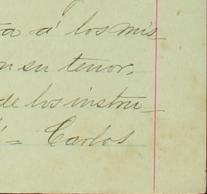 a á los mis-
n su tenor.
de los instru-
= Carlos